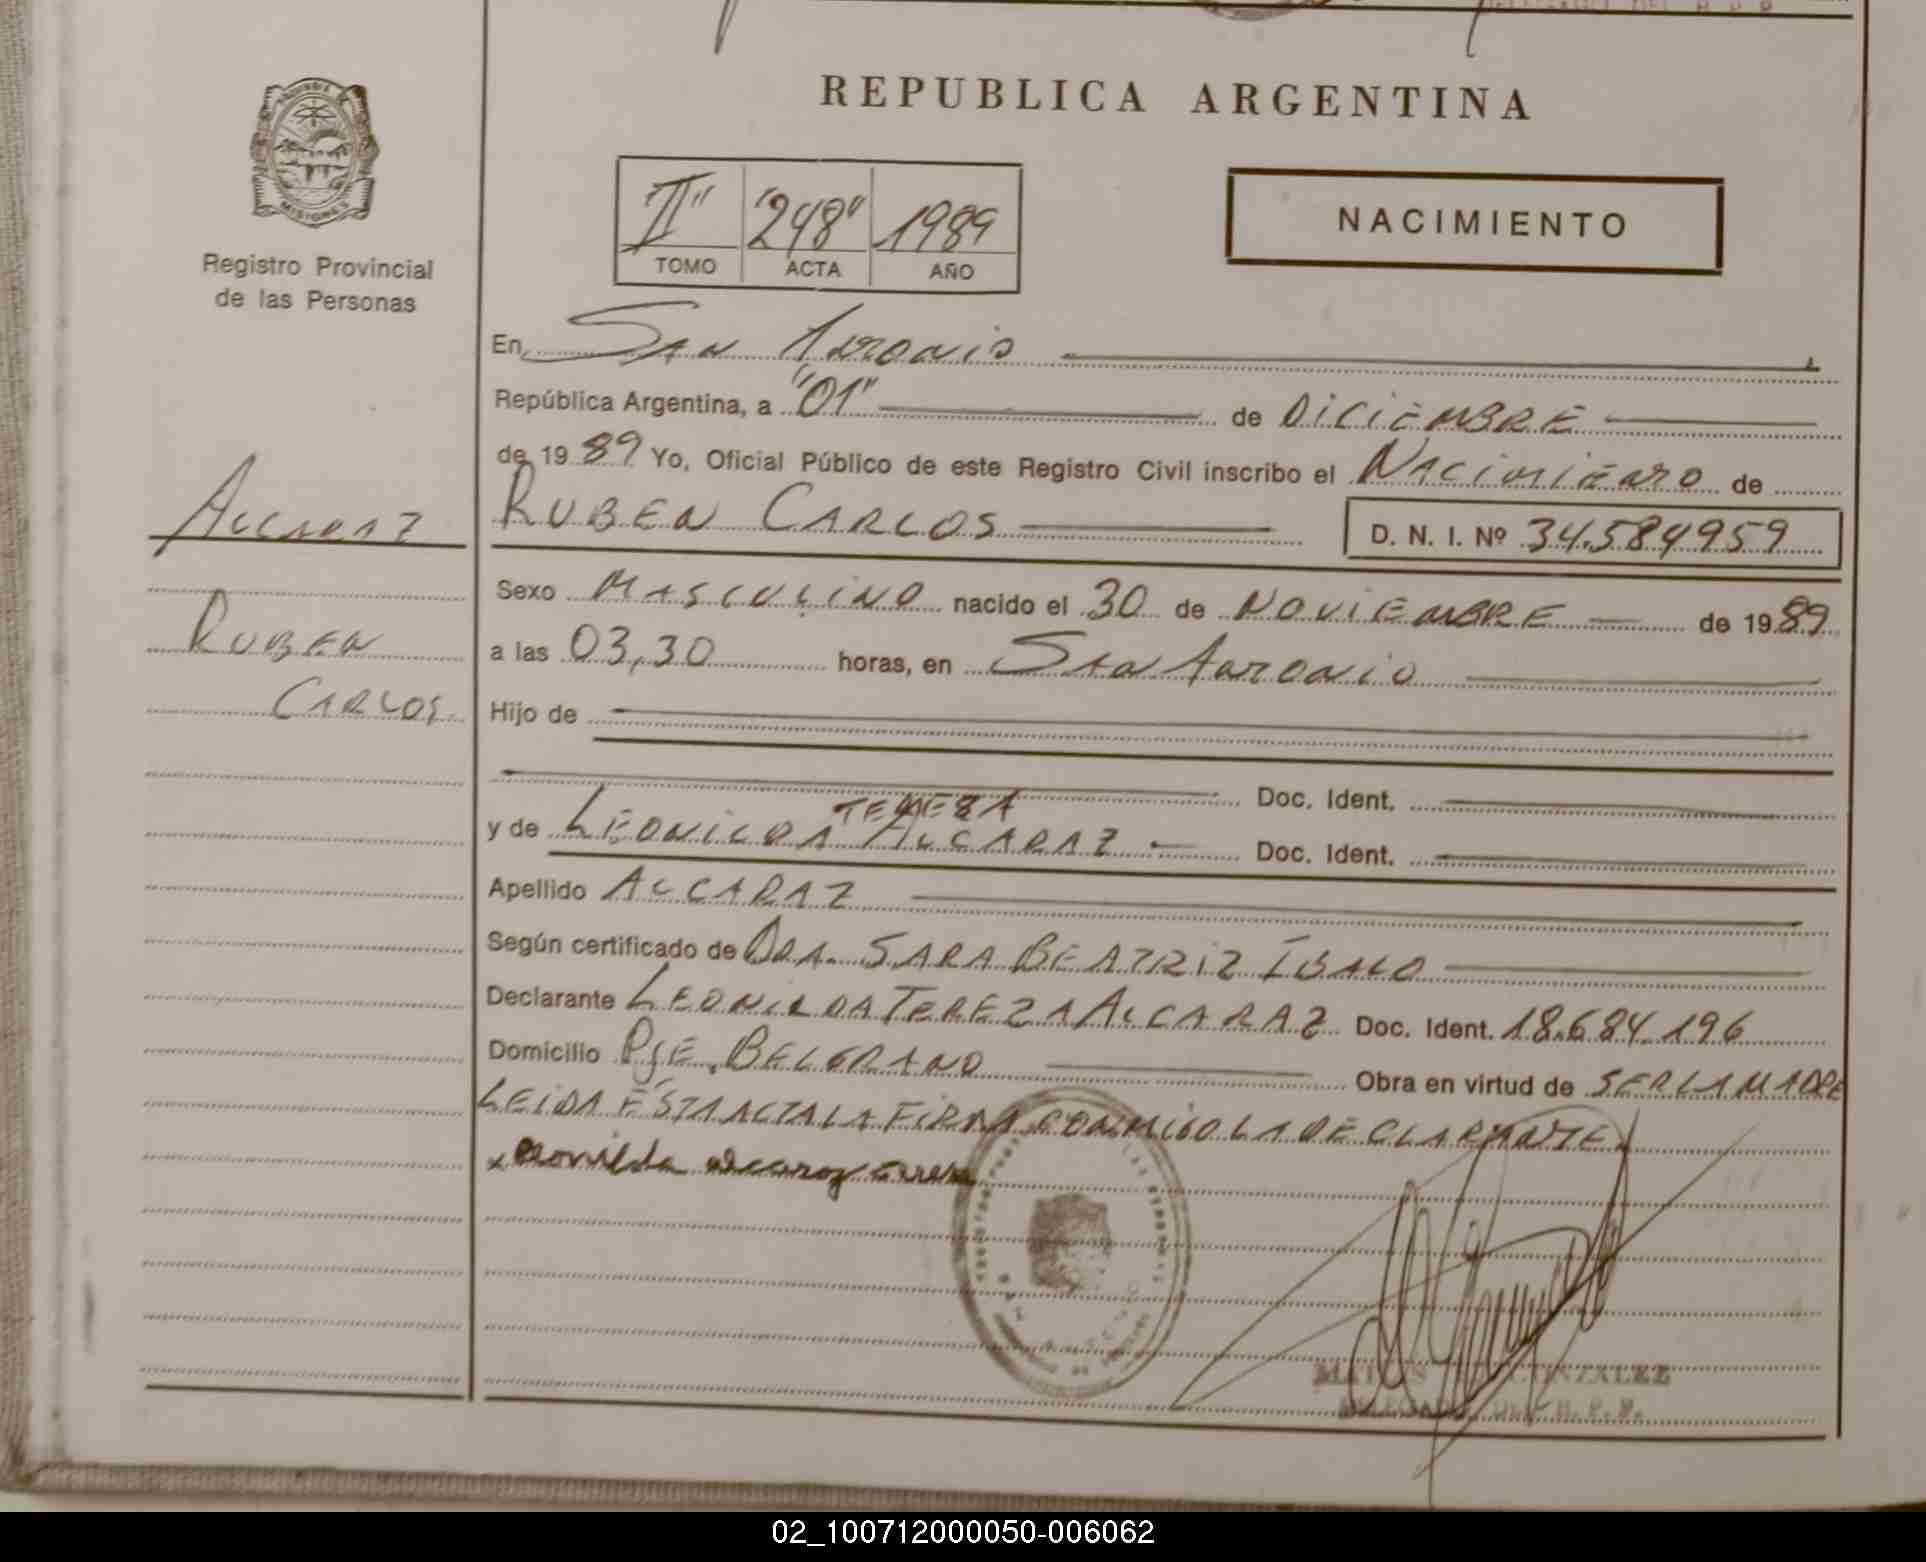 REPUBLICA ARGENTINA
MISIONES
Registro Provincial
de las Personas
"II" "248" 1989
TOMO ACTA AÑO
NACIMIENTO
En San Antonio
República Argentina, a "01" de DICIEMBRE
de 1989 Yo, Oficial Público de este Registro Civil inscribo el NACIMIENTO de
ALCARAZ
RUBEN CARLOS D. N. I. Nº 34.584959
Sexo MASCULINO nacido el 30 de NOVIEMBRE de 1989
RUBEN
CARLOS
a las 03,30 horas, en San Antonio
Hijo de
Doc. Ident.
TEREZA
y de LEONILDA ALCARAZ Doc. Ident.
Apellido ALCARAZ
Según certificado de DRA. SARA BEATRIZ
Declarante LEONILDA TEREZA ALCARAZ Doc. Ident. 18.684.196
Domicilio PJE. BELGRANO Obra en virtud de SER LA MADRE
LEIDA ESTA ACTA LA FIRMA CONMIGO LA DECLARANTE.
x Leonilda alcaraz
GONZALEZ
DELEGADO DEL R. P. P.
02_100712000050-006062